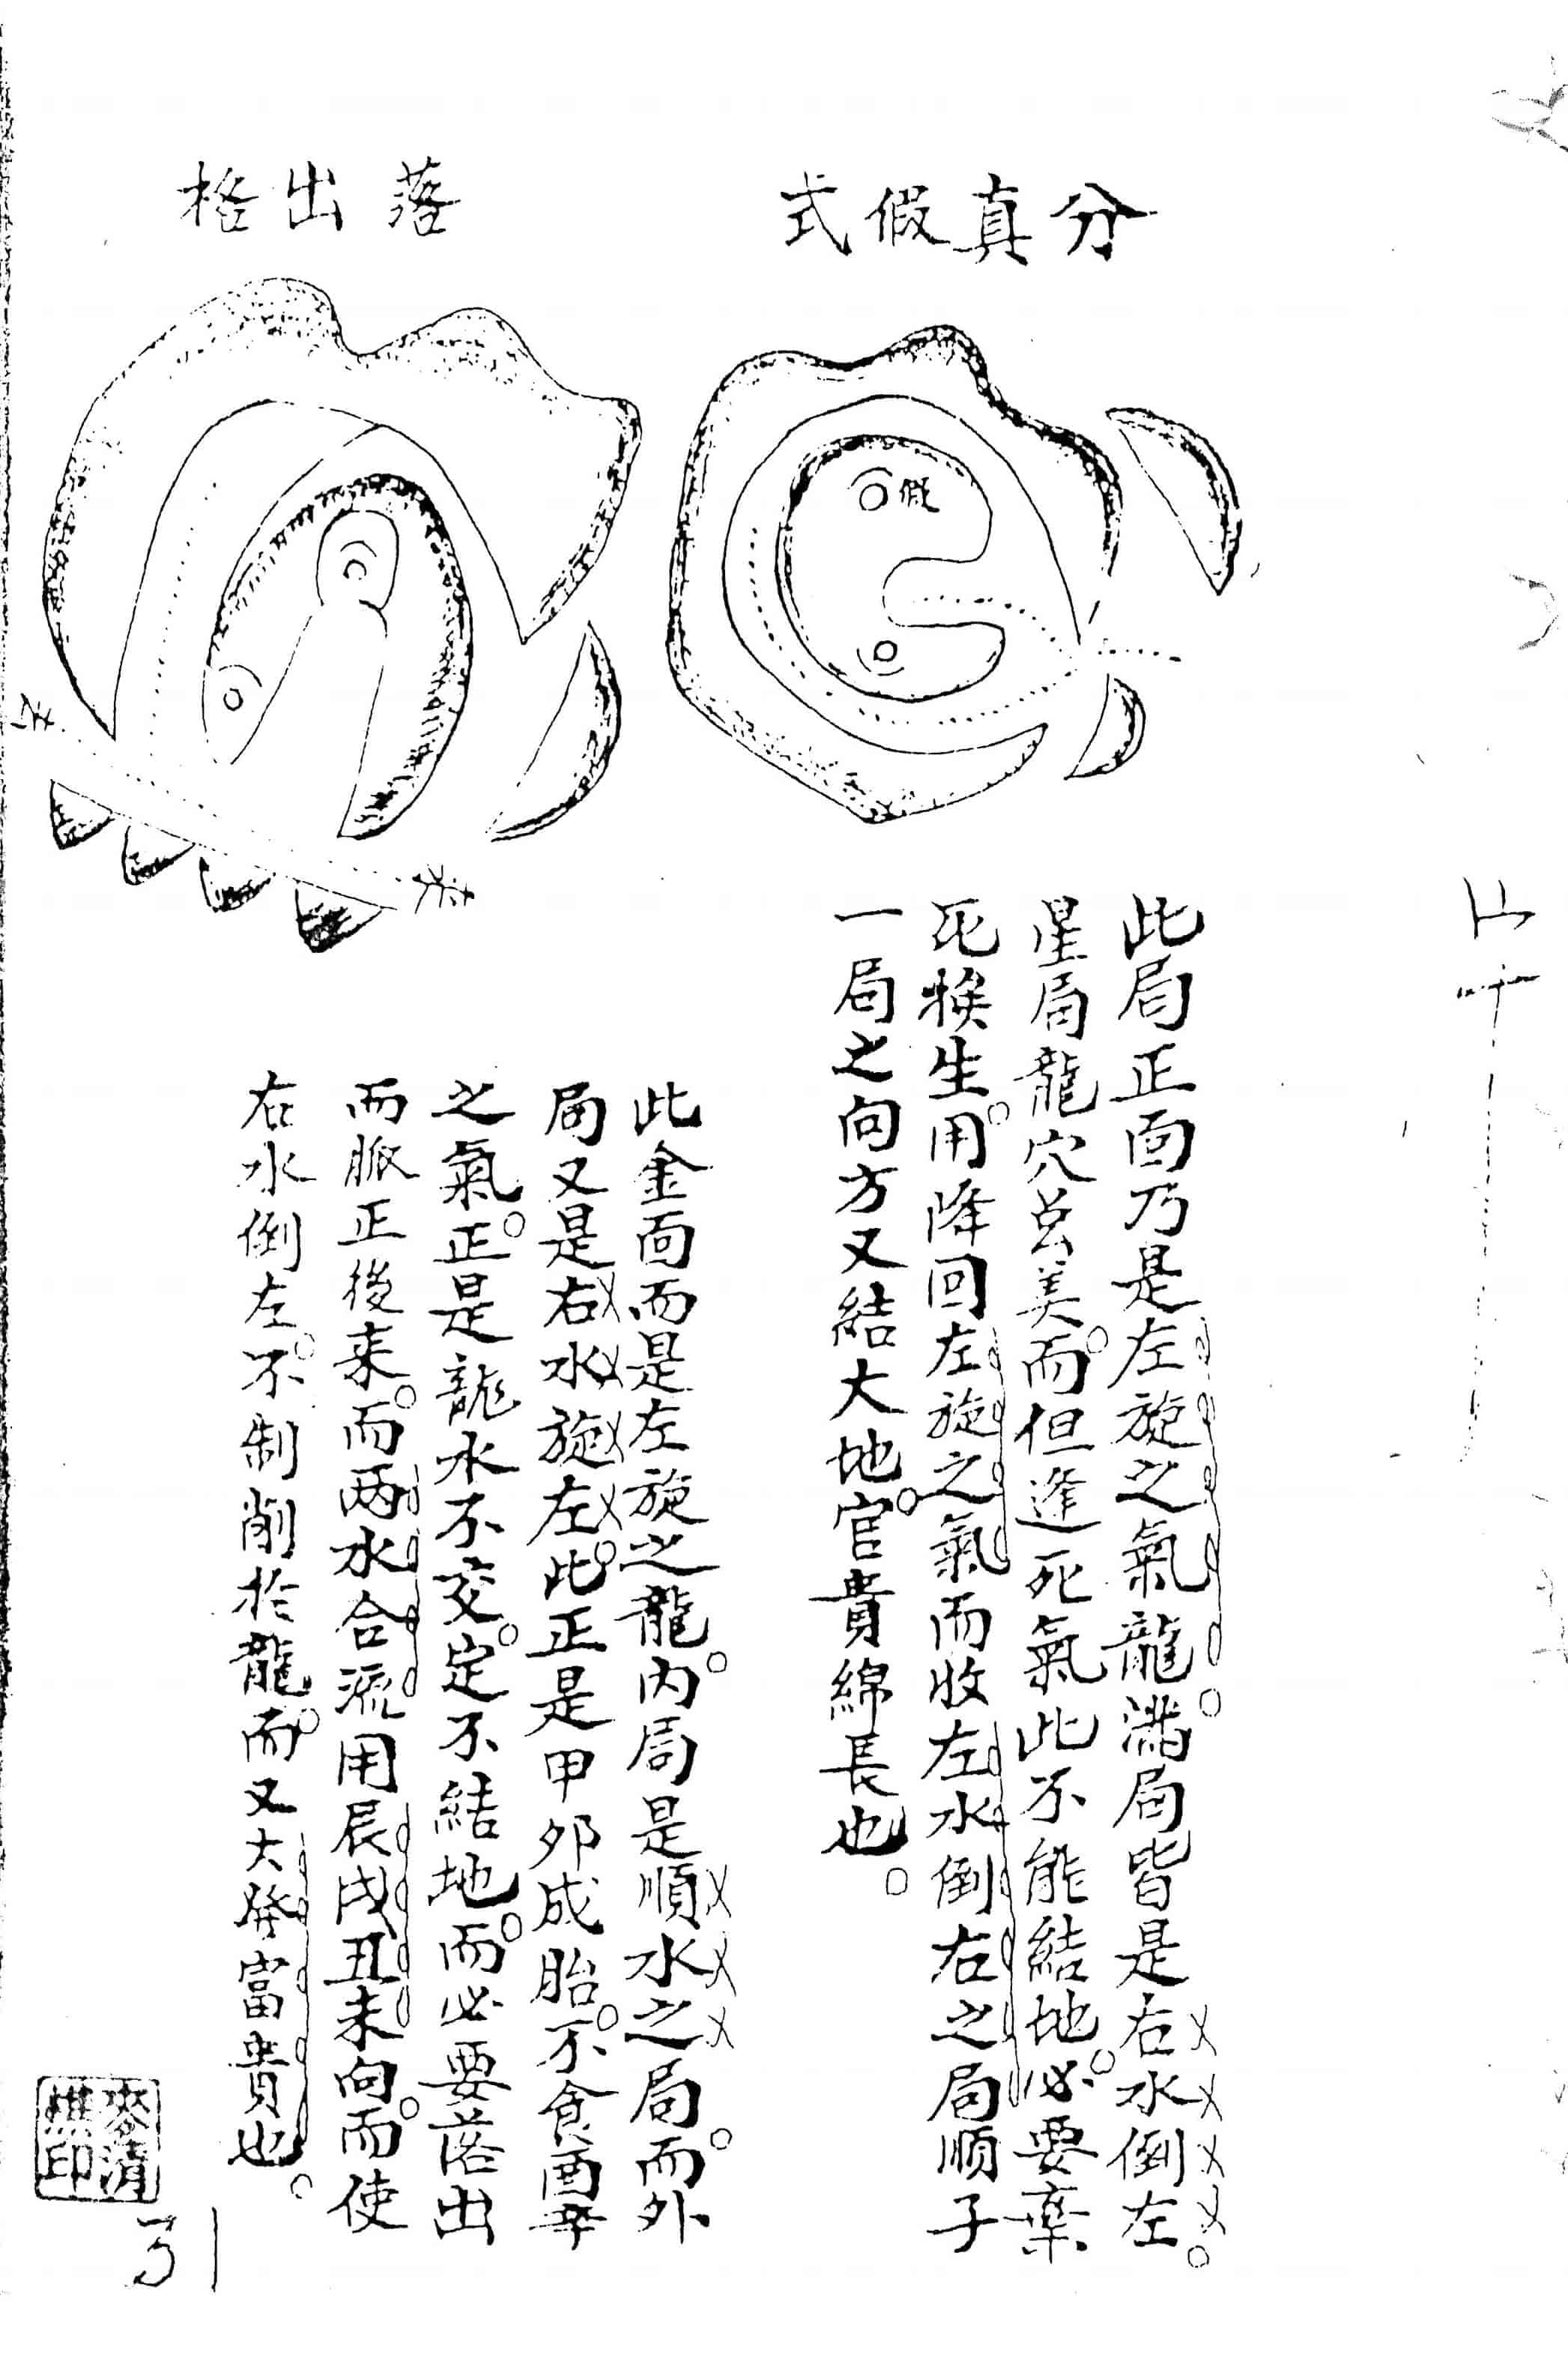 分真假式
假
此局正面乃是左旋之氣龍。滿局皆是右水倒左。
星局龍穴全美。而但逢死氣此不能結地。必要棄
死挨生。用降回左旋之氣而收左水倒右之局順子
一局之向方又結大地。官貴綿長也。
落出格
此金面而是左旋之龍。內局是順水之局。而外
局又是右水旋左。此正是甲卯成胎。不食酉辛
之氣。正是龍水不交。定不結地。而必要落出
而脈正後来。而两水合流用辰戌丑未向。而使
右水倒左。不制削於龍。而又大發富貴也。